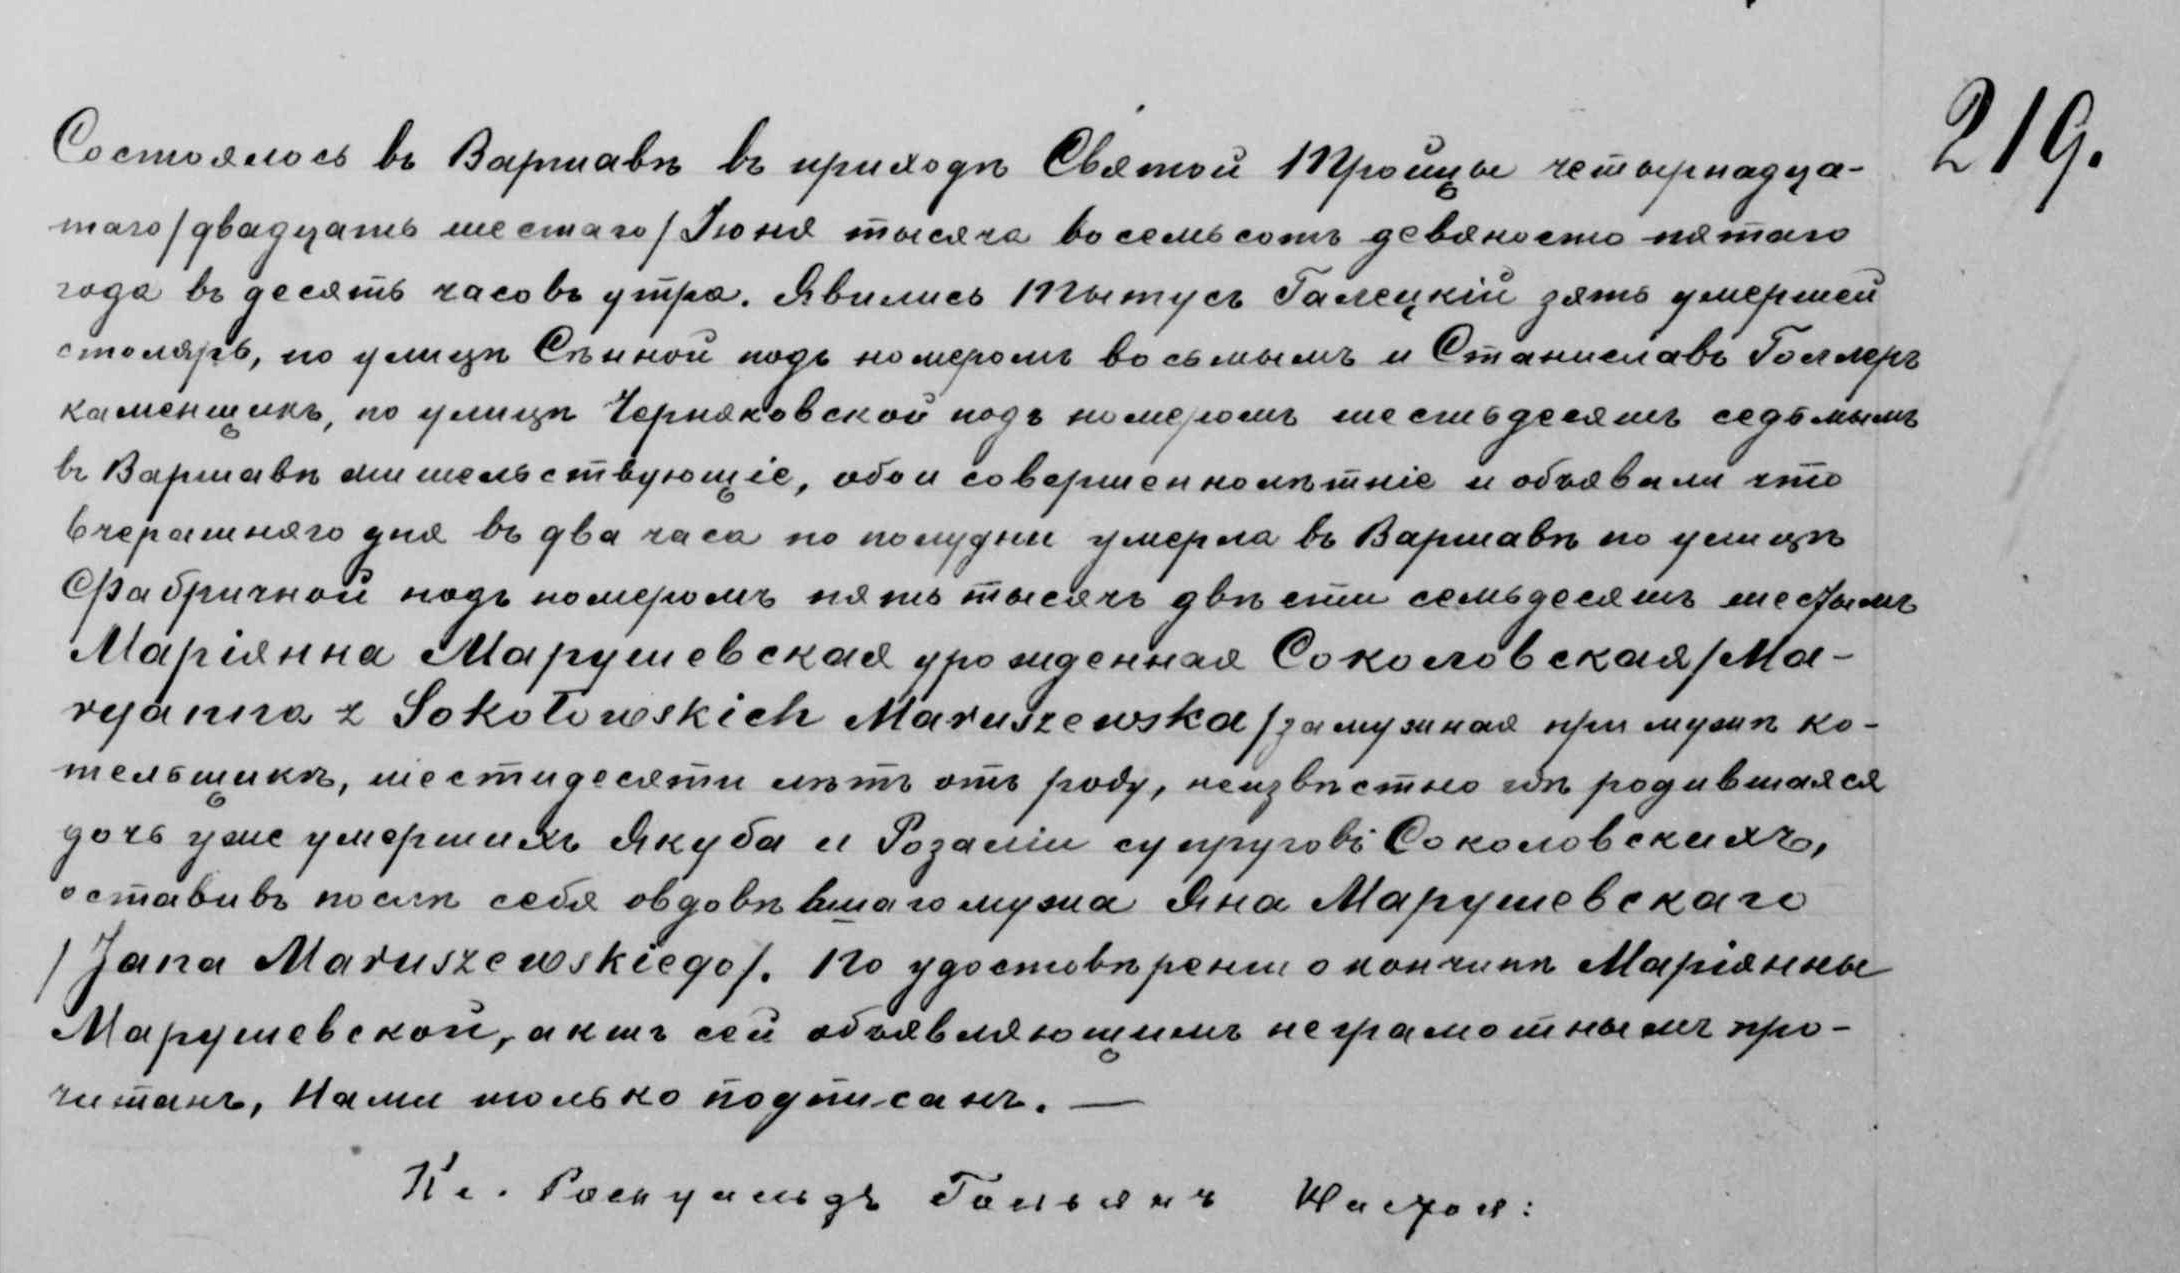 219.
Состоялось въ Варшавѣ въ приходѣ Святой Тройцы четырнадца-
таго /двадцать шестаго/ Іюня тысяча восемьсотъ девяносто пятаго
года въ десять часовъ утра. Явились Тытусъ Галецкій зять умершей
столяръ, по улицѣ Сѣнной подъ номеромъ восьмымъ и Станиславъ Голлеръ
каменщикъ, по улицѣ Черняковской подъ номеромъ шестьдесятъ седьмымъ
въ Варшавѣ жительствующіе, обои совершеннолѣтніе и объявили что
вчерашняго дня въ два часа по полудни умерла въ Варшавѣ по улицѣ
Фабричной подъ номеромъ пять тысячъ двѣсти семьдесятъ шестымъ
Маріянна Марушевская урожденная Соколовская /Ma-
ryanna z Sokołowskich Maruszewska/ замужная при мужѣ ко-
тельщикѣ, шестидесяти лѣтъ отъ роду, неизвѣстно гдѣ родившаяся
дочь уже умершихъ Якуба и Розаліи супруговъ Соколовскихъ,
оставивъ послѣ себя овдовѣвшаго мужа Яна Марушевскаго
/Jana Maruszewskiego/. По удостовѣреніи о кончинѣ Маріянны
Марушевской, актъ сей объявляющимъ неграмотнымъ про-
читанъ, Нами только подписанъ. —
Кс.